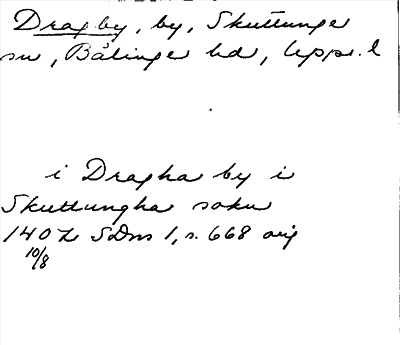 Dragby, by, Skuttunge
sn, Bålinge hd, Upps. l
i Dragha by i
Skuttungha sokn
1402 SDns 1, s. 668 orig
10/8